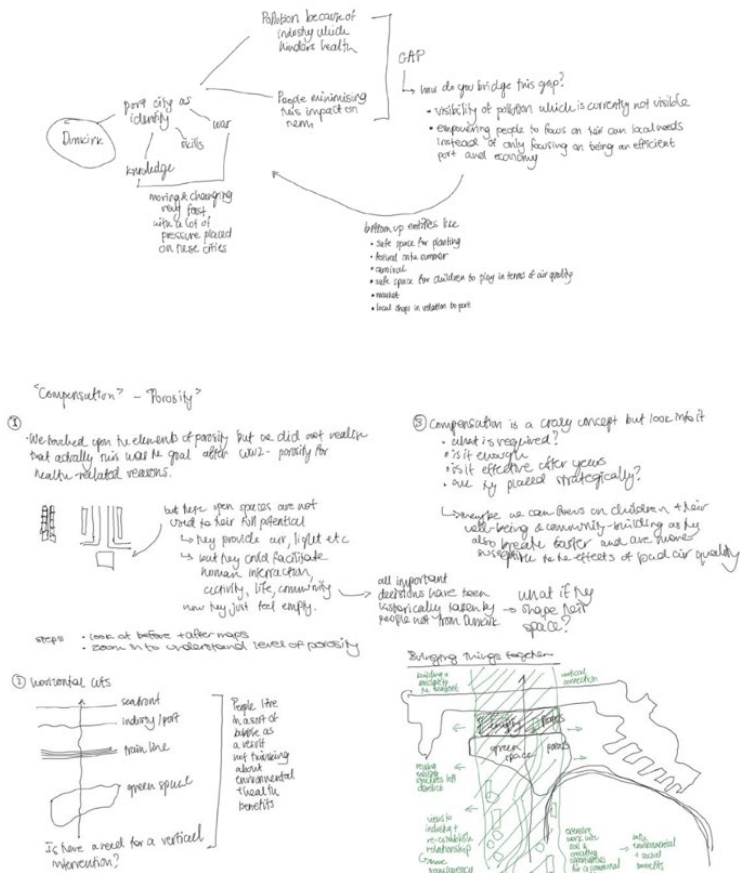 Pollution because of
industry which
hinders health
GAP
how do you bridge this gap?
• visibility of pollution which is currently not visible
People minimising
this impact on
them
• empowering people to focus on their own local needs
instead of only focusing on being an efficient
port and economy
port city as
identity
war
Dunkirk
skills
knowledge
moving & changing
very fast
with a lot of
pressure placed
on these cities
bottom up entities like
• safe space for planting
• festival into summer
• carnival
• safe space for children to play in terms of air quality
• market
• local shops in relation to port
"Compensation" - "Porosity"
①
• We touched upon the elements of porosity but we did not realise
that actually this was the goal after WW2 - porosity for
health-related reasons.
but here open spaces are not
used to their full potential
↳ they provide air, light etc
↳ but they could facilitate
human interaction,
activity, life, community
now they just feel empty.
all important
decisions have been
historically taken by
people not from Dunkirk
what if they
shape their
space?
steps • look at before + after maps
• zoom in to understand level of porosity
② Horizontal cuts
seafront
industry/port
train line
green space
People live
in a sort of
bubble as
a result
not thinking
about
environmental
+ health
benefits
Is there a need for a vertical
intervention?
③ Compensation is a crazy concept but look into it
• what is required?
• is it enough
• is it effective after years
• are they placed strategically?
↳ maybe we can focus on children + their
well-being & community-building as they
also breathe faster and are more
susceptible to the effects of bad air quality
Bringing things together
building a
to seafront
vertical
connection
green
space
views to
industry +
re-establish
relationship
extensive
soil &
creating
opportunities
for communal
with
environmental
+ social
benefits